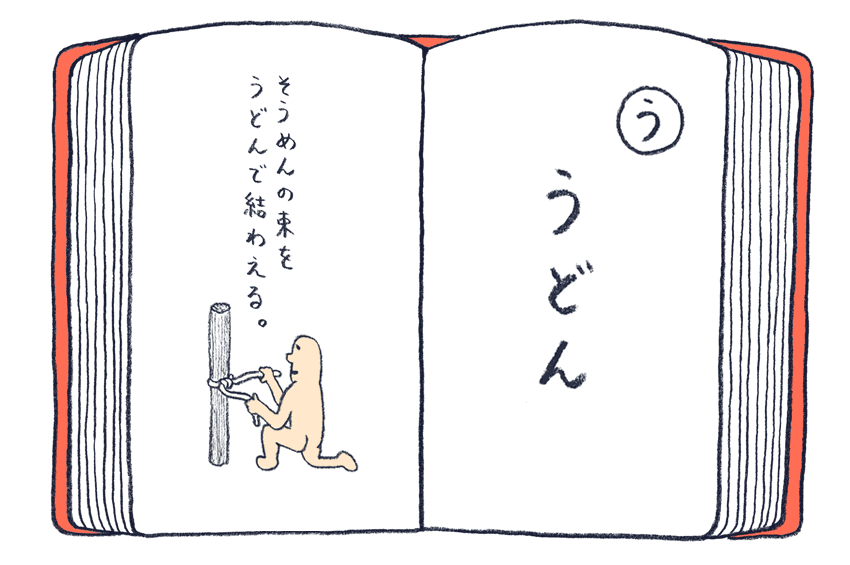 う
うどん
そうめんの束を
うどんで結わえる。